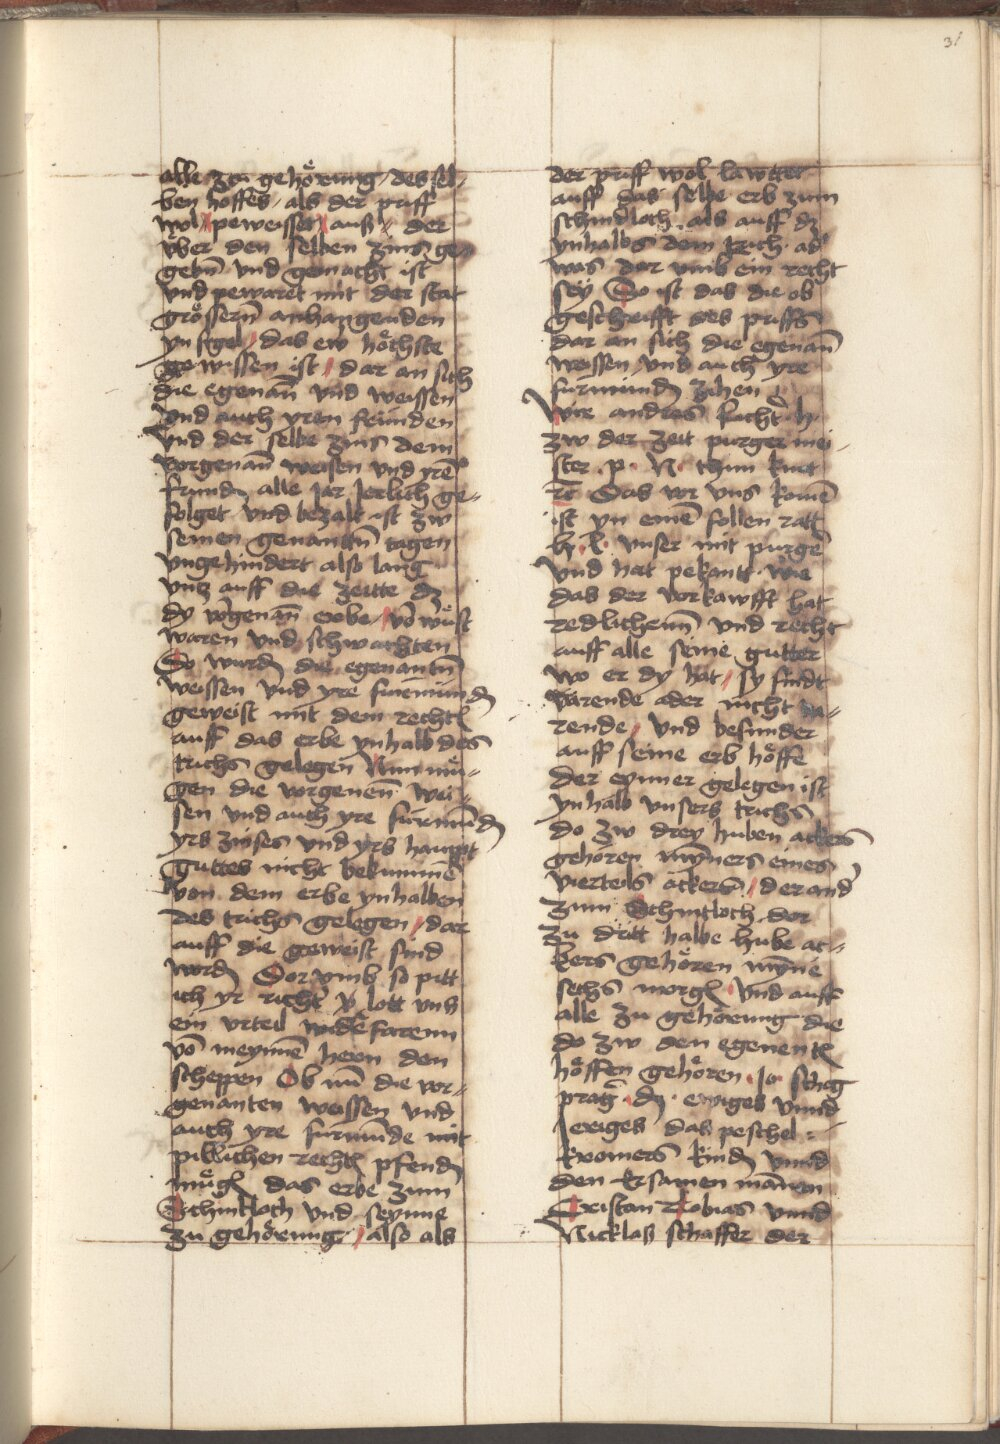 31
alle zu gehörung des sel-
ben hoffes als der priff
wol peweisset auß der
vber den selben zins ge-
gebn vnd gemacht ist
vnd pewaret mit der stat
grössern anhangenden
ynsigel das ew höchste
gewissen ist dar an sich
die egenan vnd weissen
vnd auch yren frunden
vnd der selbe zins dem
vorgenan weisen vnd yre
frund alle Jar Jerlich ge-
folget vnd bezalt ist zw
seinen genanttn tagen
vngehindert also lang
vntz auff die zeitte dz
dy vorgenan erbe vo wüst
waren vnd schwachten
So wurd die egenantn
weissen vnd yre furmund
geweist mit dem recht
auff das erbe ynhalb des
krichs gelegen Nun mü-
gen die vorgenen wei-
sen vnd auch yre furmund
yrs zinses vnd yrs haupt
guttes nicht bekumme
von dem erbe ynhalben
des krichs gelegen dar
auff die geweist sind
word Dor vmb so pitt
ich yr richt lott vns
ein vrteil widfarenn
vo meynne hern den
scheppen Ob nu die vor-
genanten weissen vnd
auch yre furmunde mit
pillichen recht pfend
müg das erbe zum
Schintloch vnd seynne
zu gehörung also als
der priff wol lawttet
auff das selbe erb zum
schindloch als auff dz
ynhalbs dem krich ad
was dar vmb ein recht
sey So ist das die ob
geschrifft des priffs
dar an sich die egenan
weissen vnd auch yre
furmund zihen
Wir andres h.
zw der zeit purger mei-
ster p. N. thun kunt
rc Das vor vns kome
ist yn eine follen ratt
h. k. vnser mit purge
vnd hat pekantt wie
das der vorkawfft hat
redlichenn vnd recht
auff alle seine gutter
wo er dy hat sy sindt
varende ader nicht va-
rende vnd besunder
auff seine erb höffe
der eynner gelegen ist
ynhalb vnsers krichs
do zw drey huben ackers
gehoren mynners eines
vierteils ackers der and
zum Schintloch dor
zu dritt halbe hube ac-
kers gehören myne
sechs morg vnd auff
alle zu gehörung die
do zw den egenent
höffen gehören Jo schg
prag dz ewiges vnnd
ewiges das peschel
kromers kind vnnd
den Ersamen manen
Cristan Tobias vnnd
Nicklas schaffer der